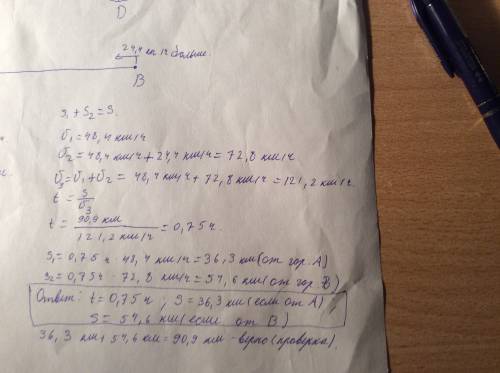 D
24,4 км/ч больше.
B
S₁ + S₂ = S.
V₁ = 48,4 км/ч
V₂ = 48,4 км/ч + 24,4 км/ч = 72,8 км/ч
V₃ = V₁ + V₂ = 48,4 км/ч + 72,8 км/ч = 121,2 км/ч.
t = S/V₃
t = 90,9 км / 121,2 км/ч = 0,75 ч.
S₁ = 0,75 ч · 48,4 км/ч = 36,3 км (от гор. А)
S₂ = 0,75 ч · 72,8 км/ч = 54,6 км (от гор. В)
Ответ: t = 0,75 ч ; S = 36,3 км (если от А)
S = 54,6 км (если от В)
36,3 км + 54,6 км = 90,9 км - верно (проверка).